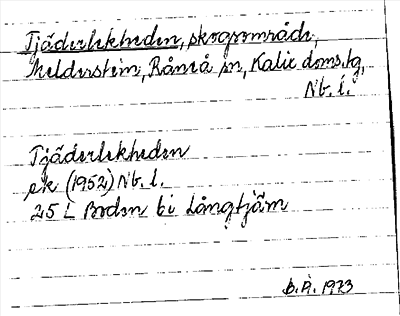 Tjäderlekheden, skogsområde,
Melderstein, Råneå sn, Kalix doms.tg,
Nb. l.
Tjäderlekheden
ek (1952) Nb. l.
25 L Boden bi Långtjärn
b.Å. 1973